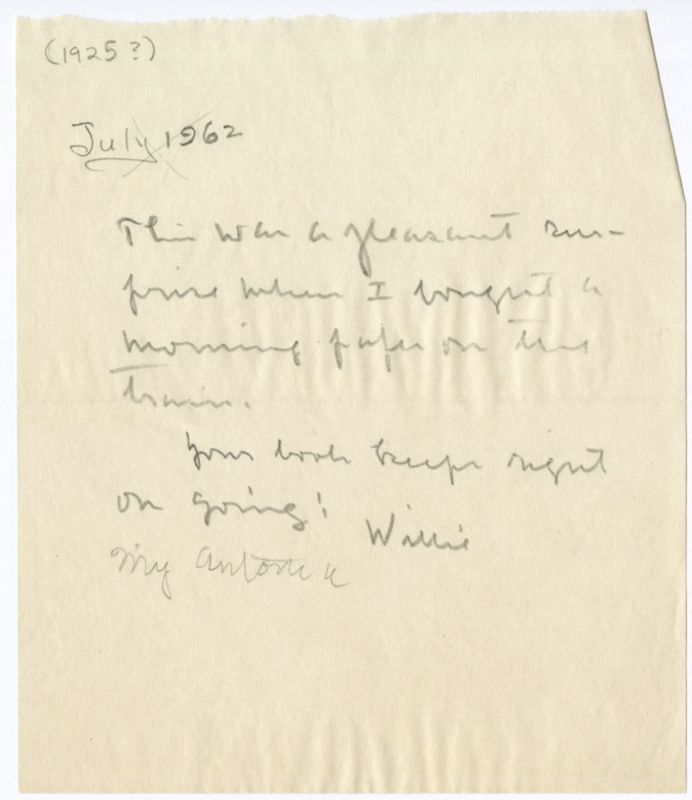 (1925?)
July 1962
This was a pleasant sur-
prise when I bought a
morning paper on the
train.
Your book keeps right
on going!
Willie
My Antonia